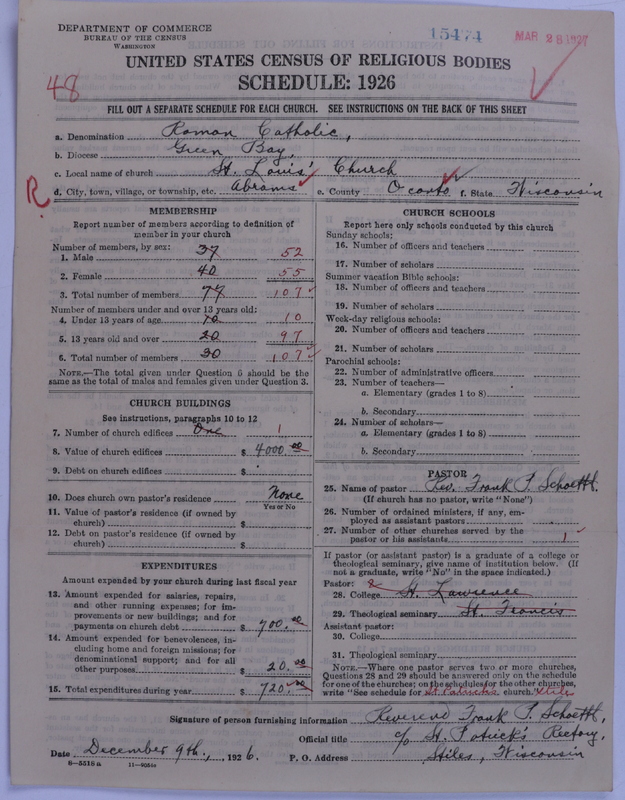 DEPARTMENT OF COMMERCE
BUREAU OF THE CENSUS
WASHINGTON
15474
MAR 28 1927
UNITED STATES CENSUS OF RELIGIOUS BODIES
SCHEDULE: 1926
48
FILL OUT A SEPARATE SCHEDULE FOR EACH CHURCH. SEE INSTRUCTIONS ON THE BACK OF THIS SHEET
a. Denomination Roman Catholic,
b. Diocese Green Bay,
c. Local name of church St. Louis' Church
R. d. City, town, village, or township, etc. Abrams e. County Oconto f. State Wisconsin
MEMBERSHIP
Report number of members according to definition of
member in your church
Number of members, by sex:
1. Male 37 52
2. Female 40 55
3. Total number of members 77 107
Number of members under and over 13 years old:
4. Under 13 years of age 10 10
5. 13 years old and over 20 97
6. Total number of members 30 107
NOTE.—The total given under Question 6 should be the
same as the total of males and females given under Question 3.
CHURCH BUILDINGS
See instructions, paragraphs 10 to 12
7. Number of church edifices One 1
8. Value of church edifices $ 4000.00
9. Debt on church edifices $
10. Does church own pastor's residence None
Yes or No
11. Value of pastor's residence (if owned by
church) $
12. Debt on pastor's residence (if owned by
church) $
EXPENDITURES
Amount expended by your church during last fiscal year
13. Amount expended for salaries, repairs,
and other running expenses; for im-
provements or new buildings; and for
payments on church debt $ 700.00
14. Amount expended for benevolences, in-
cluding home and foreign missions; for
denominational support; and for all
other purposes $ 20.00
15. Total expenditures during year $ 720.00
CHURCH SCHOOLS
Report here only schools conducted by this church
Sunday schools:
16. Number of officers and teachers
17. Number of scholars
Summer vacation Bible schools:
18. Number of officers and teachers
19. Number of scholars
Week-day religious schools:
20. Number of officers and teachers
21. Number of scholars
Parochial schools:
22. Number of administrative officers
23. Number of teachers—
a. Elementary (grades 1 to 8)
b. Secondary
24. Number of scholars—
a. Elementary (grades 1 to 8)
b. Secondary
PASTOR
25. Name of pastor Rev. Frank P. Schoettl.
(If church has no pastor, write "None")
26. Number of ordained ministers, if any, em-
ployed as assistant pastors
27. Number of other churches served by the
pastor or his assistants 1
If pastor (or assistant pastor) is a graduate of a college or
theological seminary, give name of institution below. (If
not a graduate, write "No" in the space indicated.)
Pastor: 2
28. College St. Lawrence
29. Theological seminary St. Francis
Assistant pastor:
30. College
31. Theological seminary
NOTE.—Where one pastor serves two or more churches,
Questions 28 and 29 should be answered only on the schedule
for one of the churches; on the schedules for the other churches,
write "See schedule for St Patricks church." Stiles
Signature of person furnishing information Reverend Frank P. Schoettl,
Official title c/o St. Patrick's Rectory,
Date December 9th., 1926. P. O. Address Stiles, Wisconsin
8—5518a 11—9054